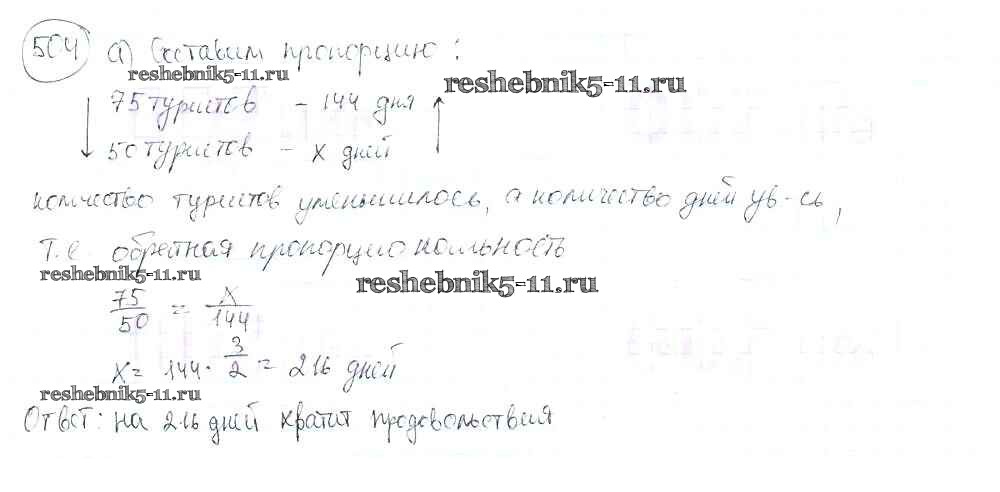 504 а) Составим пропорцию:
reshebnik5-11.ru
reshebnik5-11.ru
75 туристов - 144 дня
50 туристов - x дней
количество туристов уменьшилось, а количество дней ув-сь,
т.е. обратная пропорциональность
reshebnik5-11.ru
reshebnik5-11.ru
75/50 = x/144
x = 144 · 3/2 = 216 дней
reshebnik5-11.ru
Ответ: на 216 дней хватит продовольствия